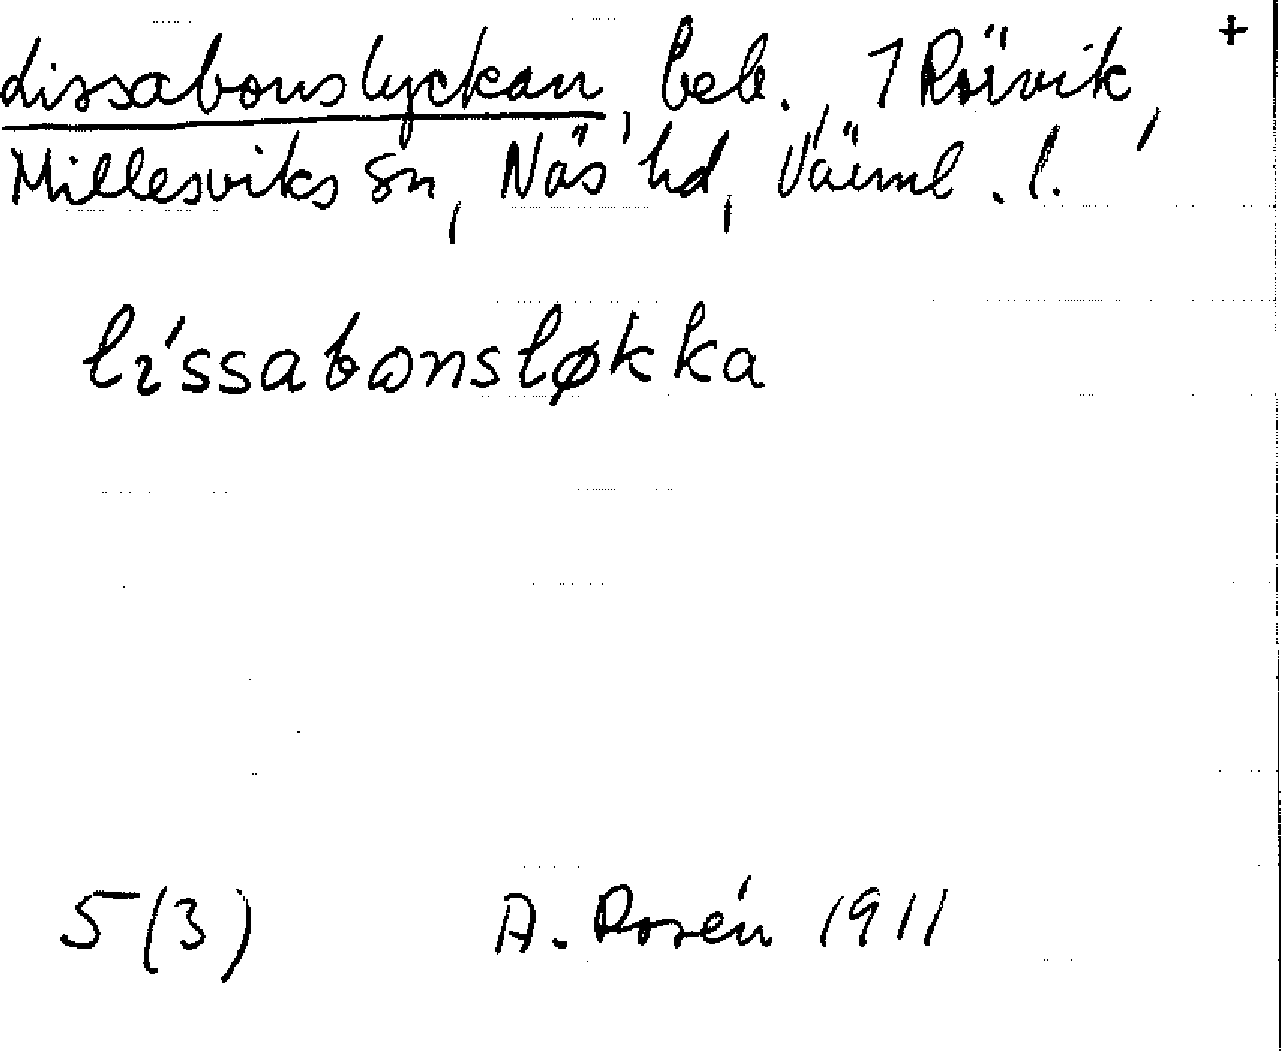 Lissabonslyckan, beb., 1 Rörvik, +
Millesviks sn, Näs hd, Värml. l.
líssabonsløkka
5 (3) A. Rosén 1911